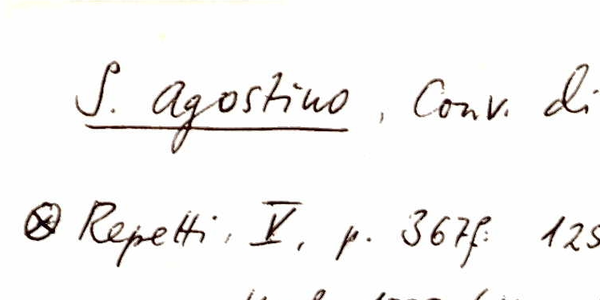 S. Agostino, Conv. di
⊗ Repetti, V, p. 367f: 125